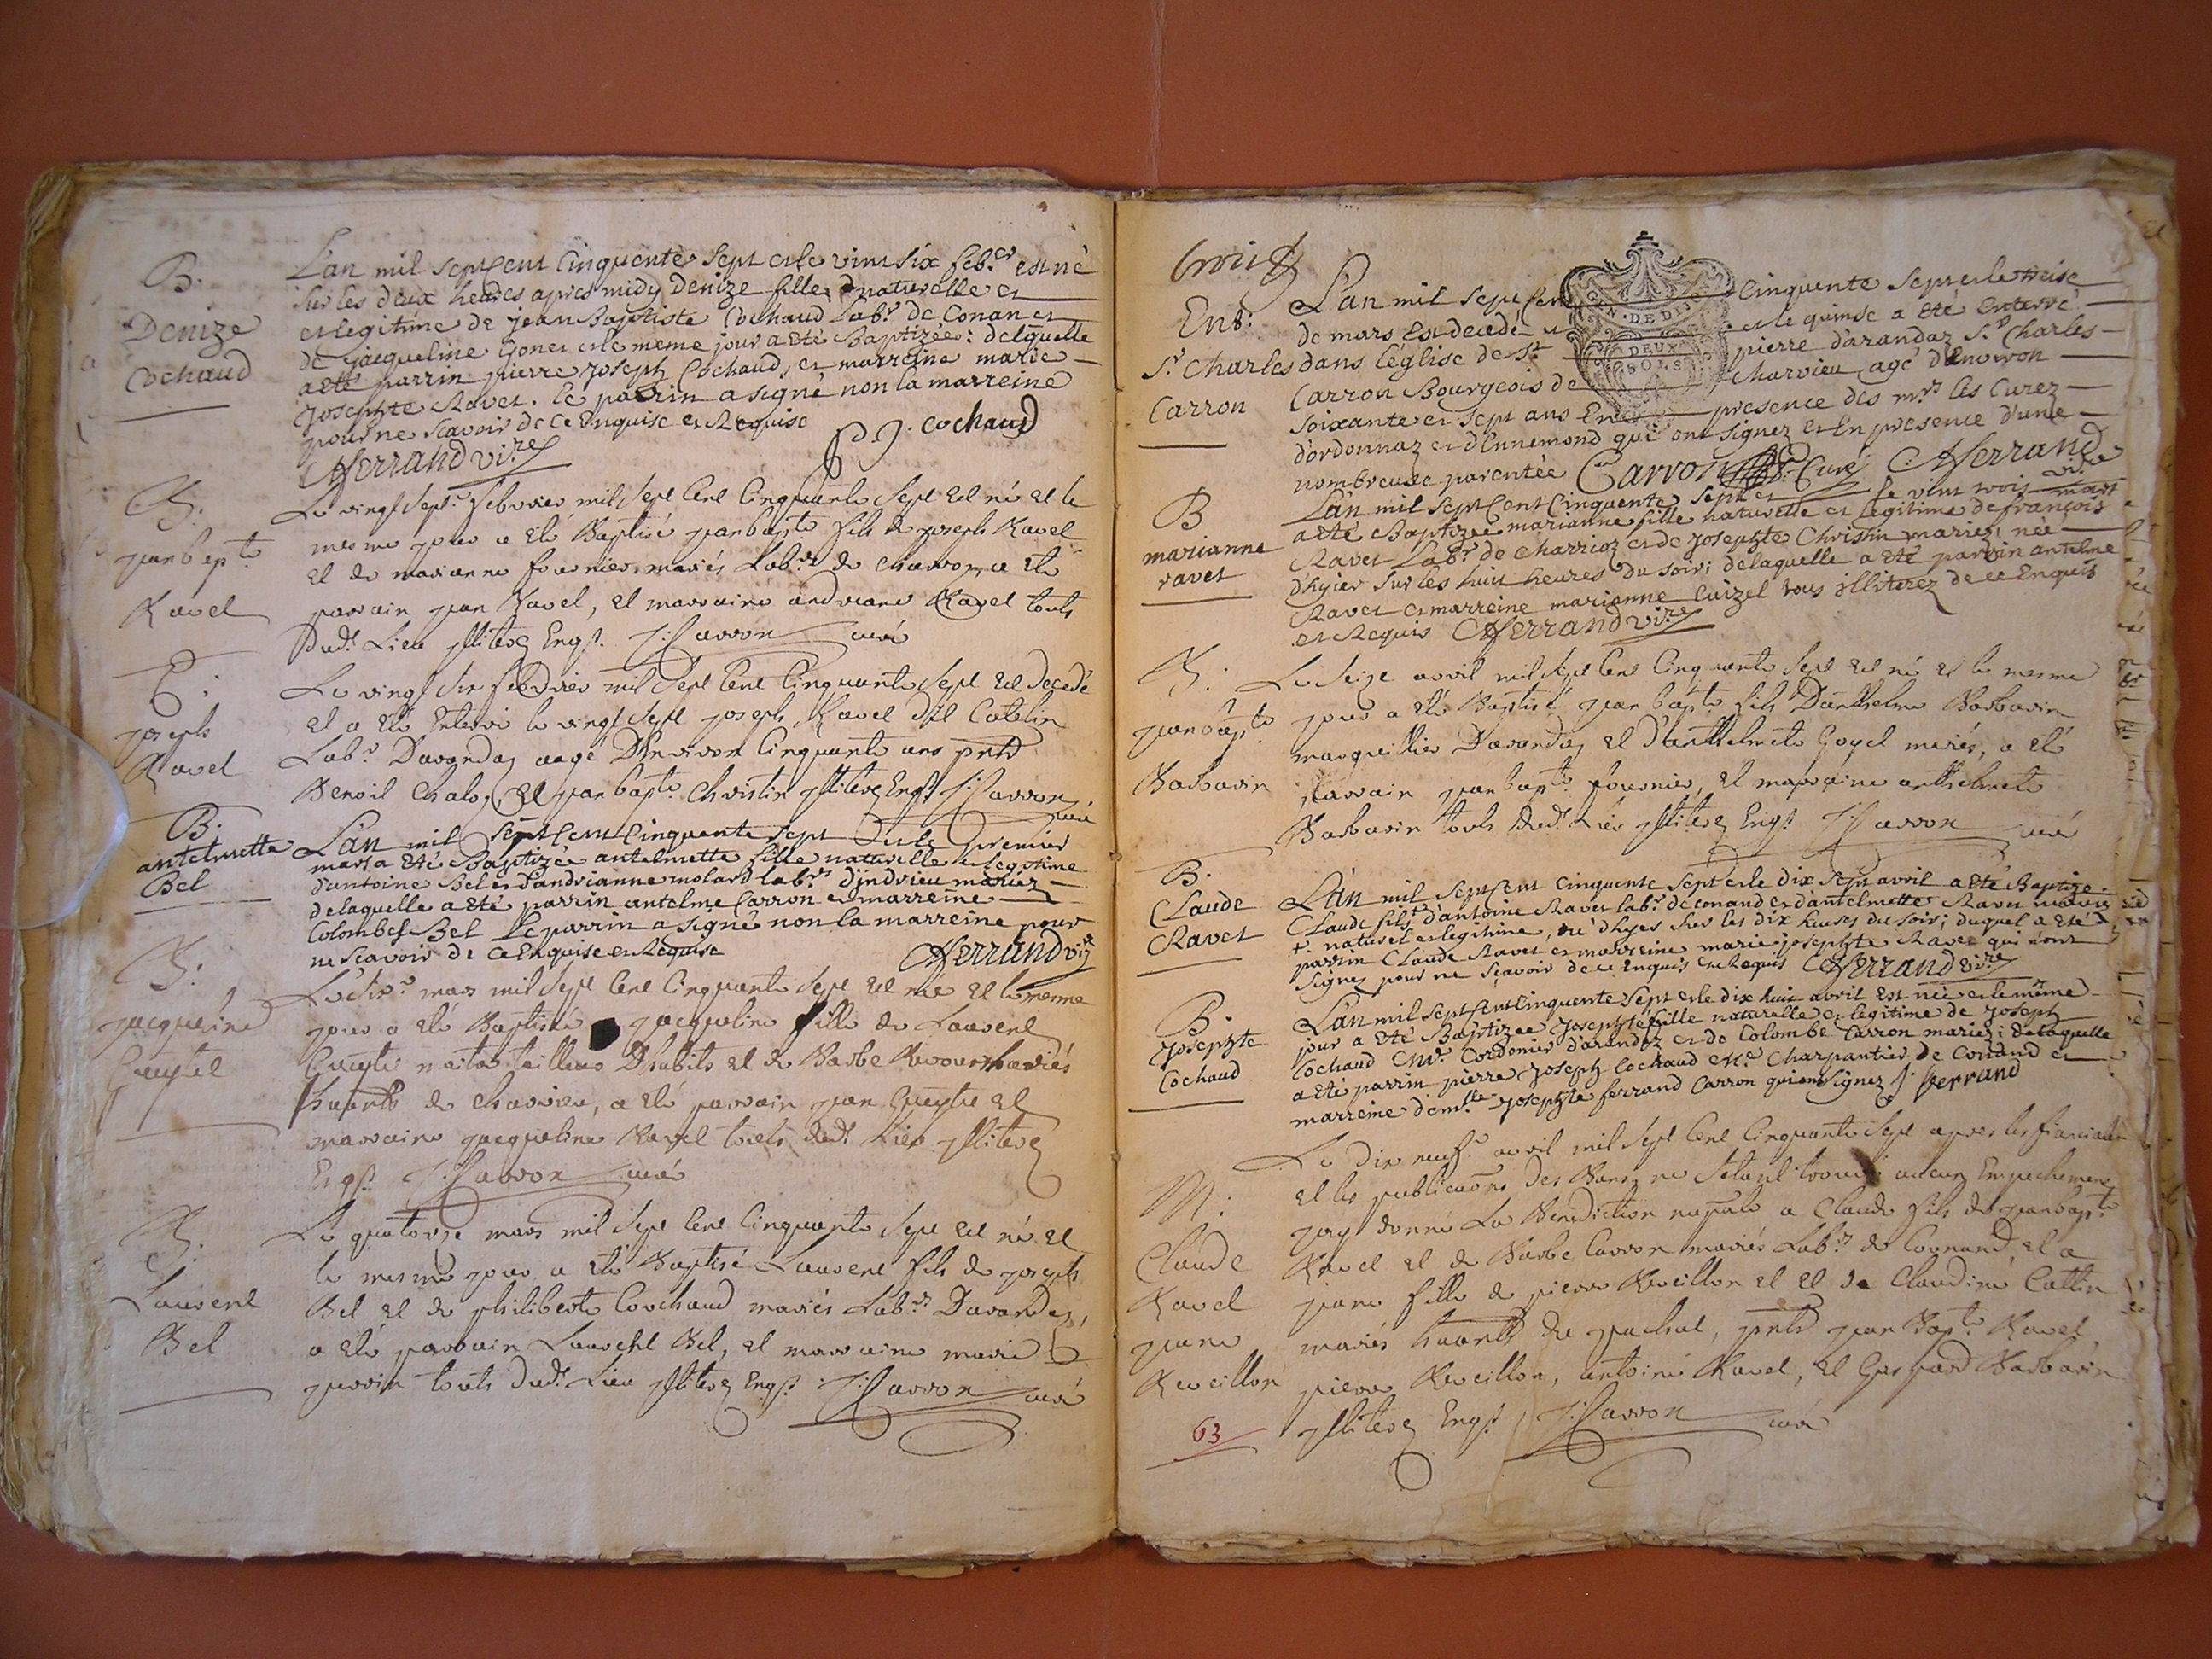 B.
Denize
Cochaud
L'an mil sept cent Cinquente Sept et le vint six feb.er est né
sur les deux heures apres midy Denize fille naturelle et
et legitime de jean Baptiste Cochaud Lab.r de Conan et
de jacqueline Gonet et le meme jour a eté Baptizée: de laquelle
a eté parrin pierre joseph Cochaud, et marreine marie
josephte Ravet. le parrin a signé non la marreine
pour ne scavoir de ce Enquise et Requise
P. J. Cochaud
Ferrand vi.re
B.
janbapt.e
Ravel
Le vingt sept.e febvrier mil sept Cent Cinquante Sept est né et le
mesme jour a eté Baptisé janbapte fils de joseph Ravel
et de marianne fournier mariés Lab.rs de a eté
parrain jean Ravel, et marraine andreane Ravel touts
Dud.t Lieu jlliterez Enq.s J: Carron curé
E:
joseph
Ravel
Le vingt six febvrier mil sept Cent Cinquante sept est decedé
et a eté Enterré le vingt sept joseph Ravel dit Catelin
Lab.r Darandaz aagé D'Environ Cinquante ans pnts
Benoit Chaloz, et jean bapt.e Christin jlliterez Enq.s J: Carron
curé
B.
antelmette
Bel
L'an mil sept cent Cinquente sept et le premier
mars a eté Baptizée antelmette fille naturelle et legitime
d'antoine Bel et d'andrianne molard lab.rs d'indrieu mariez
de laquelle a eté parrin antelme Carron et marreine
Colombe Bel Le parrin a signé non la marreine pour
ne scavoir de ce Enquise et Requise
Ferrand vi.re
B:
jacqueline
Le six.e mars mil sept Cent Cinquante sept est née et le mesme
jour a eté Baptisée jacqueline fille de Laurent
maitre tailleur D'habits et de Barbe mariés
de Charvieu, a eté parrain jean et
marraine jacqueline Ravel touts dud.t Lieu jlliterez
Enq.s J: Carron curé
B:
Laurent
Bel
Le quatorze mars mil sept Cent Cinquante sept est né et
le mesme jour a eté Baptisé Laurent fils de joseph
Bel et de philiberte Cochaud mariés Lab.rs Darandaz,
a eté parrain Laurent Bel, et marraine marie
touts dud.t Lieu jlliterez Enq.s J: Carron curé
trois
GEN. DE DIJON
DEUX
SOLS
Ent:
S.r Charles
Carron
L'an mil sept cent Cinquente Sept et le treise
de mars Est decedé et et le quinse a eté Enterré
dans l'église de S.t pierre d'arandaz S.r Charles
Carron Bourgeois de Charvieu, agé d'Environ
soixante et sept ans En presence des m.rs les Curez
d'ordonnaz et d'Ennemond qui ont signez et En presence d'une
nombreuse parentée Carron Curé Ferrand
vi.re
B
marianne
ravet
L'an mil sept Cent Cinquente Sept et le vint trois mars
a eté Baptizée marianne fille naturelle et legitime de françois
Ravet Lab.r de Charrioz et de josephte Christin mariez, née
d'hyier sur les huit heures du soir; de laquelle a eté parrin antelme
Ravet et marreine marianne Cuizel tous illiterez de ce Enquis
et Requis Ferrand vi.re
B.
janbapt.e
Barbarin
Le Seize avril mil sept Cent Cinquante Sept est né et le mesme
jour a eté Baptisé jean bapte fils D'anthelme Barbarin
marguillier Darandaz et D'anthelmete Goyet mariés, a eté
parrain jean bapt.e fournier, et marraine anthelmete
Barbarin touts dud.t Lieu jlliterez Enq.s J: Carron curé
B.
Claude
Ravet
L'an mil sept Cent Cinquente Sept et le dix sept avril a eté Baptizé
Claude fils d'antoine Ravet lab.r de conand et d'antelmette Ravet mariez
+ naturel et legitime, né d'hyer sur les dix heures du soir; duquel a eté
parrin Claude Ravet et marreine marie josephte Ravet qui n'ont
signez pour ne sçavoir de ce Enquis et Requis Ferrand vi.re
B.
Josephte
Cochaud
L'an mil sept Cent Cinquente Sept et le dix huit avril Est née et le même
jour a eté Baptizée josephte fille naturelle et legitime de joseph
Cochaud m.e Cordonier d'arandaz et de Colombe Carron mariez: de laquelle
a eté parrin pierre joseph Cochaud m.e Charpantier de Conand et
marreine dem.lle josephte ferrand Carron qui ont signez J. ferrand
M:
Claude
Ravel
jeane
Reveillon
Le dix neuf.e avril mil sept Cent Cinquante sept apres les fiancialles
et les publications des Bans ne s'etant trouvé aucun Empechement
j'ay donné La Benediction nuptiale a Claude fils de jeanbapt.e
Ravel et de Barbe Carron mariés Lab.rs de Connand, et a
jeane fille de pierre Reveillon et et de Claudine Cattin
mariés de pnts jean Bapt.e Ravel,
pierre Reveillon, antoine Ravel, et Gaspard Barbarin
jlliterez Enq.s J: Carron curé
63